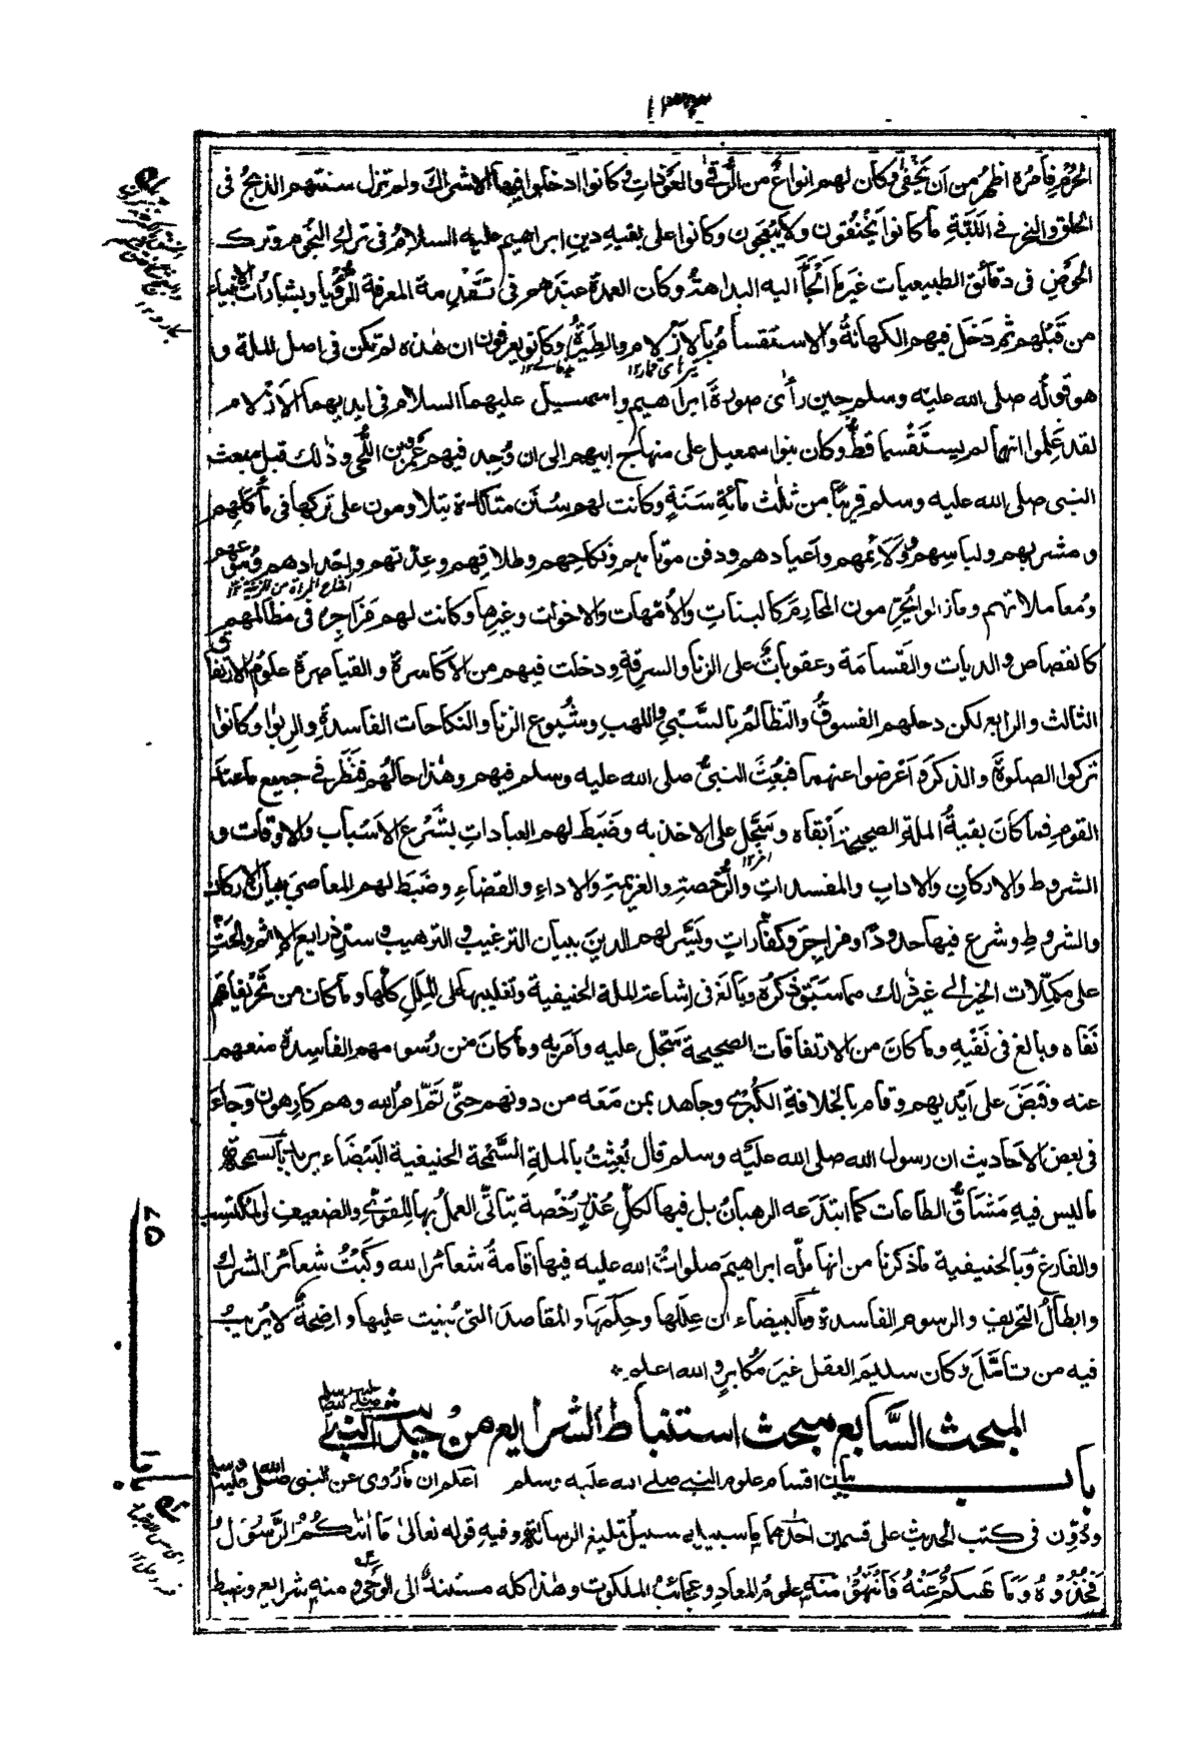 ١٣٣
الحُرُم فأمره اظهر من ان يخفى وكان لهم انواع من الرقى والعوذات وكانوا ادخلوا فيها الاشراك ولم تزل سنتهم الذبح فى
الحلق والنحر فى اللبة ما كانوا يخنقون ولا يبعجون وكانوا على بقية دين ابراهيم عليه السلام فى ترك النجوم وترك
الخوض فى دقائق الطبيعيات غير ما ألجأ اليه البداهة وكان العمدة عندهم فى تقدمة المعرفة الرؤيا وبشارات الانبياء
من قبلهم ثم دخل فيهم الكهانة والاستقسام بالازلام والطيرة وكانوا يعرفون ان هذه لم تكن فى اصل الملة و
هو قوله صلى الله عليه وسلم حين رأى صورة ابراهيم واسمعيل عليهما السلام فى ايديهما الازلام
لقد علموا انهما لم يستقسما قط وكان بنوا اسمعيل على منهاج ابيهم الى ان وجد فيهم عمرو بن اللحى وذلك قبل مبعث
النبى صلى الله عليه وسلم قريبا من ثلث مائة سنة وكانت لهم سنن متأكدة يتلاومون على تركها فى مأكلهم
و مشربهم ولباسهم وولائمهم واعيادهم ودفن موتاهم ونكاحهم وطلاقهم وعدتهم واحدادهم وبيوعهم
ومعاملاتهم وما زالوا يحرمون المحارم كالبنات والامهات والاخوات وغيرها وكانت لهم مزاجر فى مظالمهم
كالقصاص والديات والقسامة وعقوبات على الزنا والسرقة ودخلت فيهم من الاكاسرة والقياصرة علوم الارتفاق
الثالث والرابع لكن دخلهم الفسوق والتظالم بالسبى والنهب وشيوع الزنا والنكاحات الفاسدة والربوا وكانوا
تركوا الصلوة والذكر واعرضوا عنهما فبعث النبى صلى الله عليه وسلم فيهم وهذا حالهم فنظر فى جميع ما عند
القوم فما كان بقية الملة الصحيحة أبقاه وسجل على الاخذ به وضبط لهم العبادات بشرع الاسباب والاوقات و
الشروط والاركان والاداب والمفسدات والرخصة والعزيمة والاداء والقضاء وضبط لهم المعاصى ببيان الاركان
والشروط وشرع فيها حدودا ومزاجر وكفارات ويسر لهم الدين ببيان الترغيب والترهيب وسد ذرايع الاثم والحث
على مكملات الخير الى غير ذلك مما سبق ذكره وبالغ فى اشاعة الملة الحنيفية وتغليبها على الملل كلها وما كان من تحريفاتهم
نفاه وبالغ فى نفيه وما كان من الارتفاقات الصحيحة سجل عليه وأمر به وما كان من رسومهم الفاسدة منعهم
عنه وقبض على ايديهم وقام بالخلافة الكبرى وجاهد بمن معه من دونهم حتى تم امر الله وهم كارهون وجاء
فى بعض الاحاديث ان رسول الله صلى الله عليه وسلم قال بعثت بالملة السمحة الحنيفية البيضاء يريد بالسمحة
ما ليس فيه مشاق الطاعات كما ابتدعه الرهبان بل فيها لكل عذر رخصة يتأتى العمل بها للقوى والضعيف والمكتسب
والفارغ وبالحنيفية ما ذكرنا من انها ملة ابراهيم صلوات الله عليه فيها اقامة شعائر الله وكبت شعائر الشرك
وابطال التحريف والرسوم الفاسدة وبالبيضاء ان عللها وحكمها والمقاصد التى بنيت عليها واضحة لا يريب
فيه من تأمل وكان سليم العقل غير مكابر والله اعلم
المبحث السابع مبحث استنباط الشرايع من حديث النبى صلى الله عليه وسلم
باب بيان اقسام علوم النبى صلى الله عليه وسلم اعلم ان ما روى عن النبى صلى الله عليه وسلم
ودون فى كتب الحديث على قسمين احدهما ما سبيله سبيل تبليغ الرسالة وفيه قوله تعالى ما اتٰكم الرسول
فخذوه وما نهىكم عنه فانتهوا منه علوم المعاد وعجائب الملكوت وهذا كله مستند الى الوحى ومنه شرايع وضبط